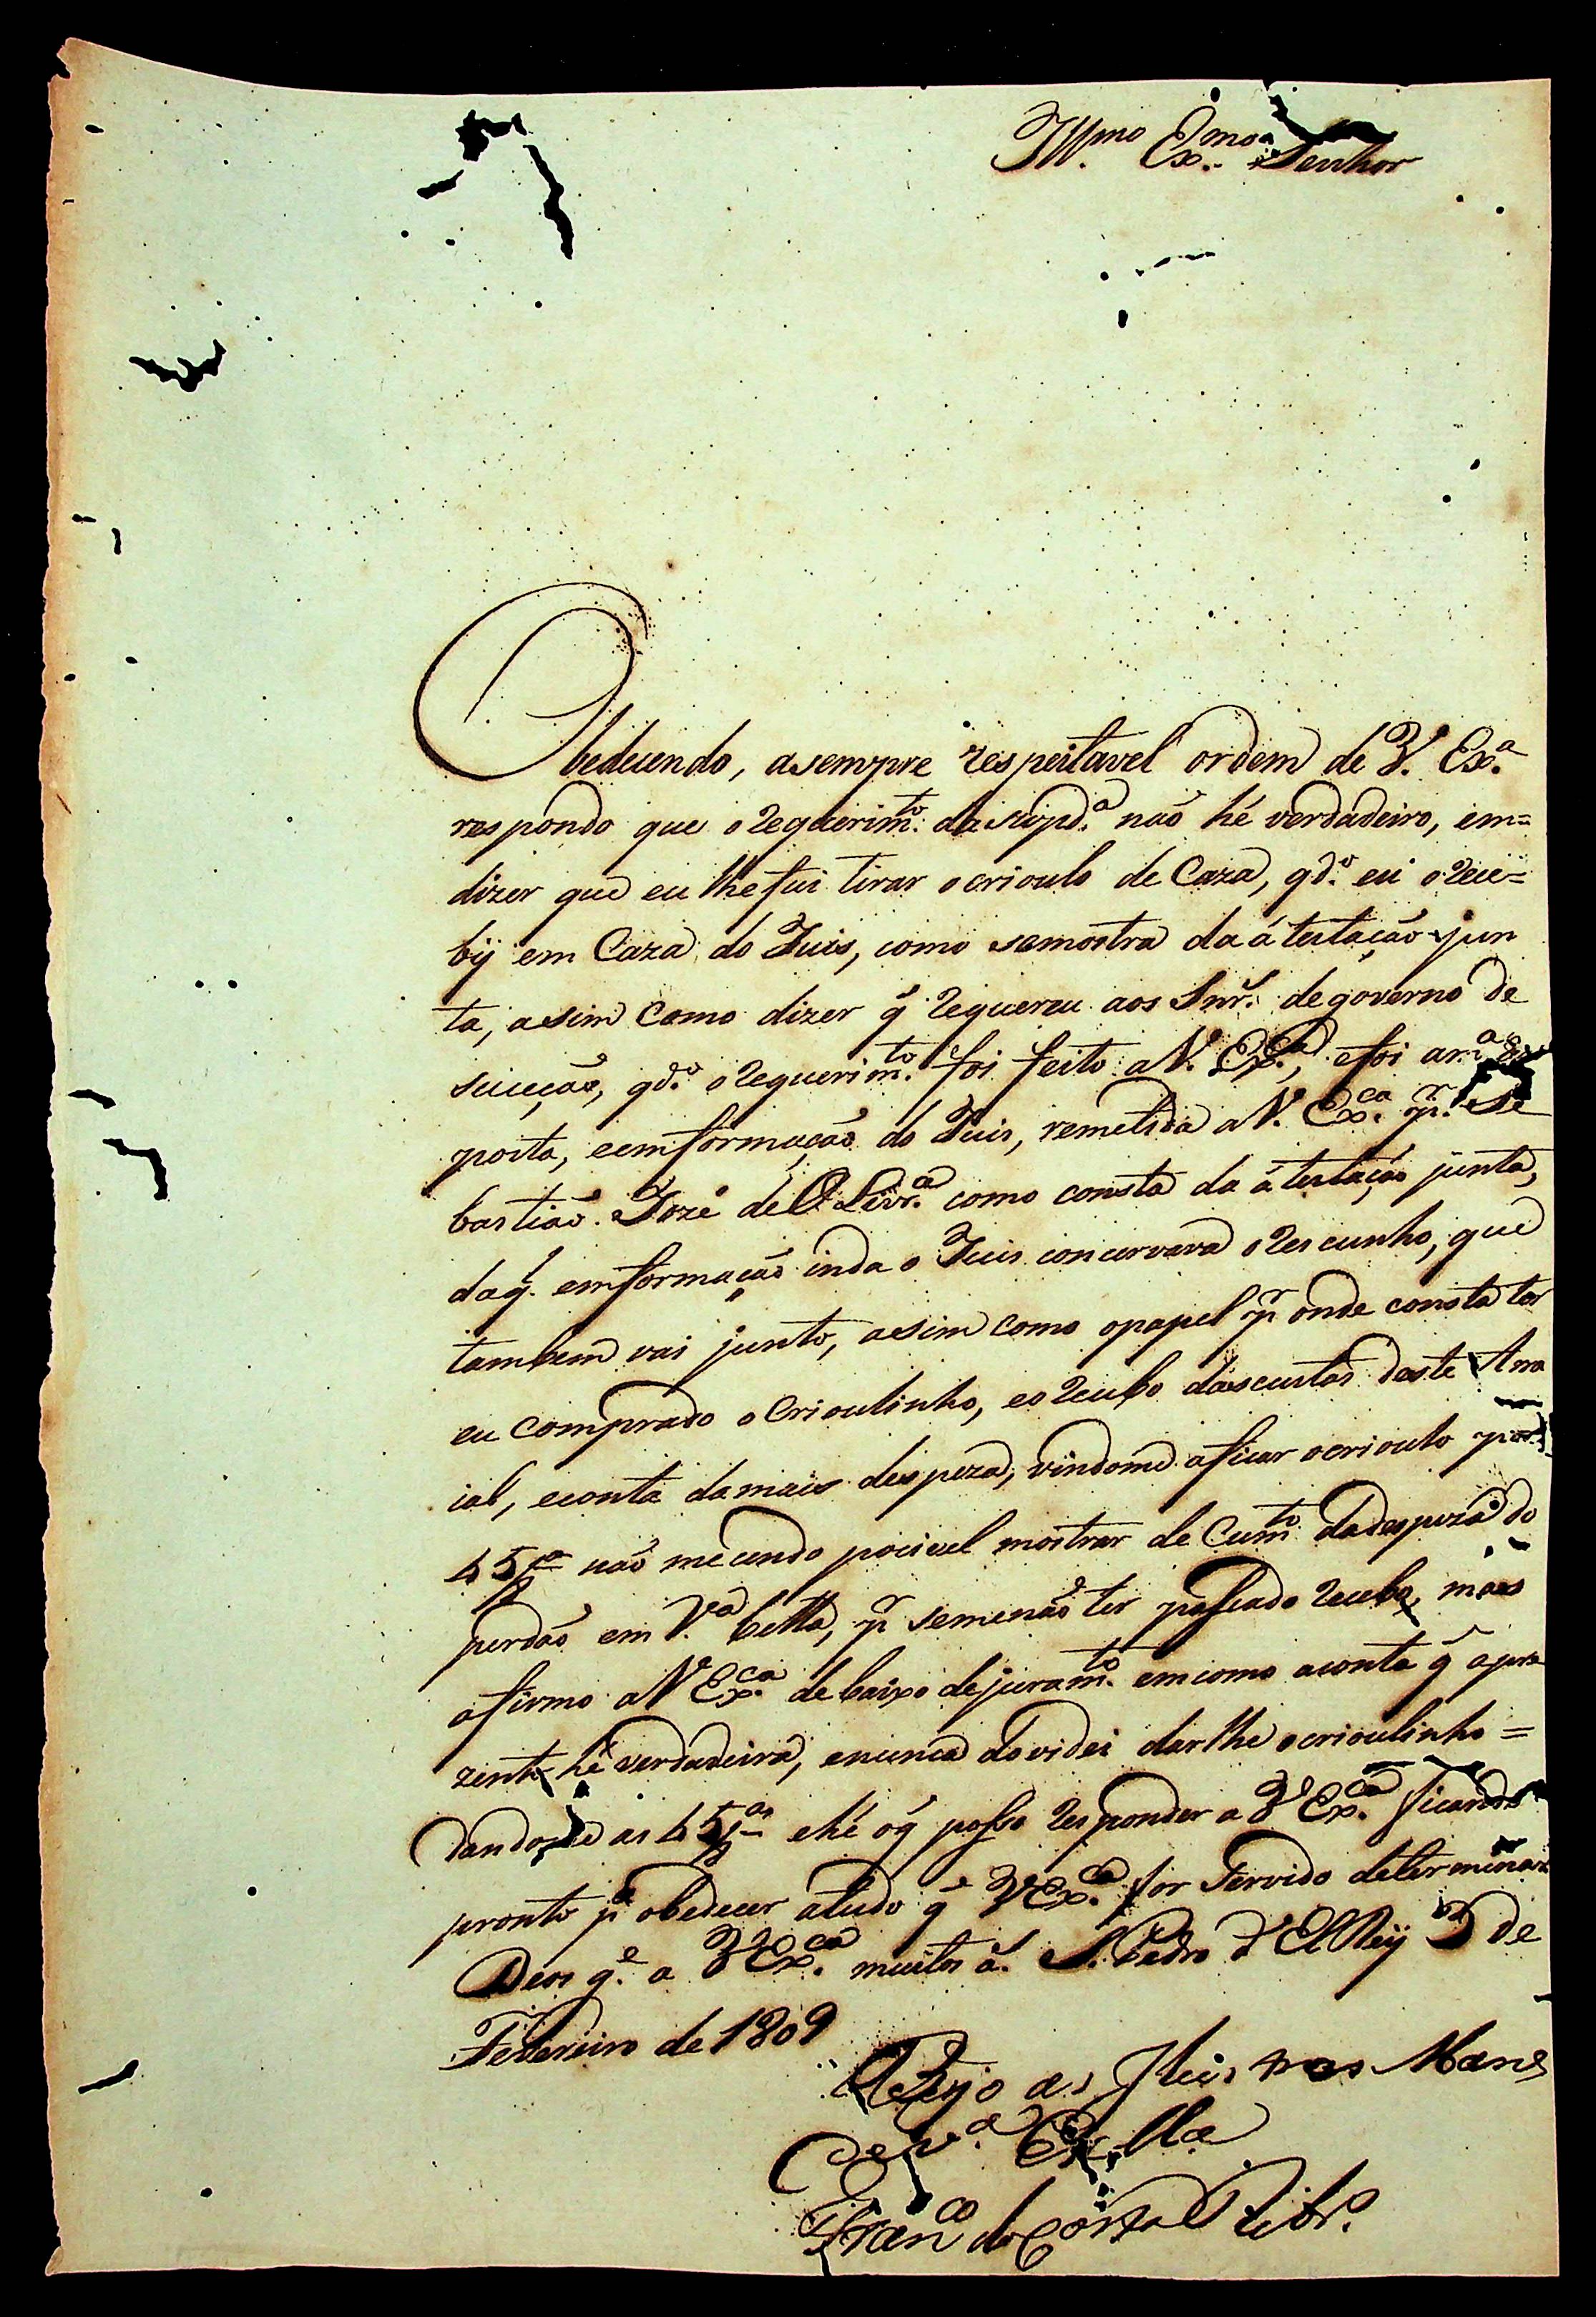 Ill.mo Ex.mo Senhor
Obedecendo, asempre respeitavel ordem de V. Ex.a
respondo que o requerim.to da supd.a não hé verdadeiro, em=
dizer que eu lhe fui tirar ocrioulo de Caza, qd.o eu orece=
bÿ em Caza do Juis, como semostra da átestação jun
ta, asim como dizer q̃ requereu aos Snr.s degoverno de
suceção, qd.o orequerim.to foi feito aV. Ex.ca, efoi
posta, eemformação do Juis, remetida aV. Ex.ca p.r Se
bastião Jozé de OLivr.a como consta da átestação junta,
daq.l emformação inda o Juis concervava orescunho, que
tambem vai junto, asim como opapel p.r onde consta ter
eu comprado o Crioulinho, eorecibo dascustas deste
ial, econta damais despeza, vindome aficar ocrioulo por
45/8.as não mecendo pocivel mostrar de Cum.to dadespeza do
perdão em V.a bella, p.r semenão ter passado recebo, mais
afirmo aV Ex.ca debaixo dejuram.to emcomo aconta q̃ apre
zento hé verdadeira, enunca dovidei darlhe ocrioulinho=
dandome as 45/8.as ehé óq̃ posso responder a V Ex.ca ficando
pronto p.a obedecer atudo q̃ V Ex.ca for Servido determinar
Deos g.e a V Ex.ca muitos á.s S. Pedro d' El Reÿ 3 de
Fevereiro de 1809
Bejo as
De V.a Ex.lla
Fran.co da Costa Ribr.o